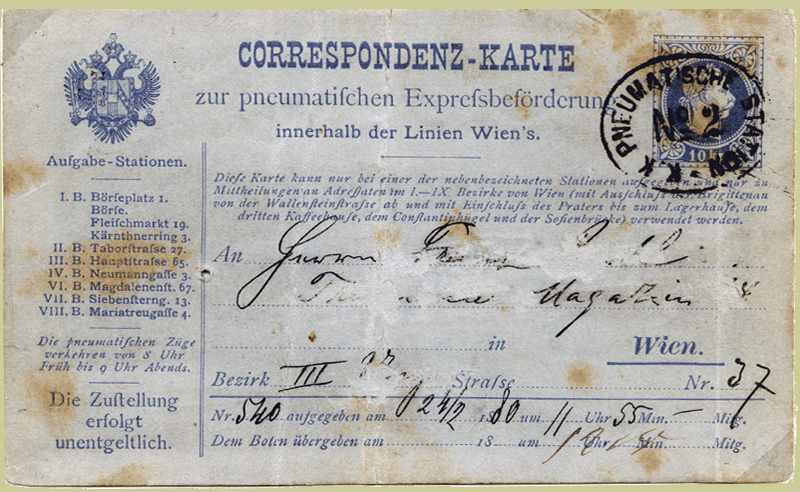 CORRESPONDENZ-KARTE
zur pneumatischen Expressbeförderung
innerhalb der Linien Wien's.
K. K. PNEUMATISCHE STATION
No 2
10
Aufgabe-Stationen.
I. B. Börseplatz 1.
Börse.
Fleischmarkt 19.
Kärnthnerring 3.
II. B. Taborstrasse 27.
III. B. Hauptstrasse 65.
IV. B. Neumanngasse 3.
VI. B. Magdalenenst. 67.
VII. B. Siebensterng. 13.
VIII. B. Mariatreugasse 4.
Die pneumatischen Züge
verkehren von 8 Uhr
Früh bis 9 Uhr Abends.
Die Zustellung
erfolgt
unentgeltlich.
Diese Karte kann nur bei einer der nebenbezeichneten Stationen aufgegeben und nur zu
Mittheilungen an Adressaten im I.—IX. Bezirke von Wien (mit Ausschluss der Brigittenau
von der Wallensteinstrasse ab und mit Einschluss des Praters bis zum Lagerhause, dem
dritten Kaffeehause, dem Constantinhügel und der Sofienbrücke) verwendet werden.
An Herrn
Magazin
in Wien.
Bezirk III Strasse Nr. 37
Nr. 540 aufgegeben am 24/2 18 80 um 11 Uhr 55 Min. — Mitg.
Dem Boten übergeben am 18 um Uhr Min. Mitg.